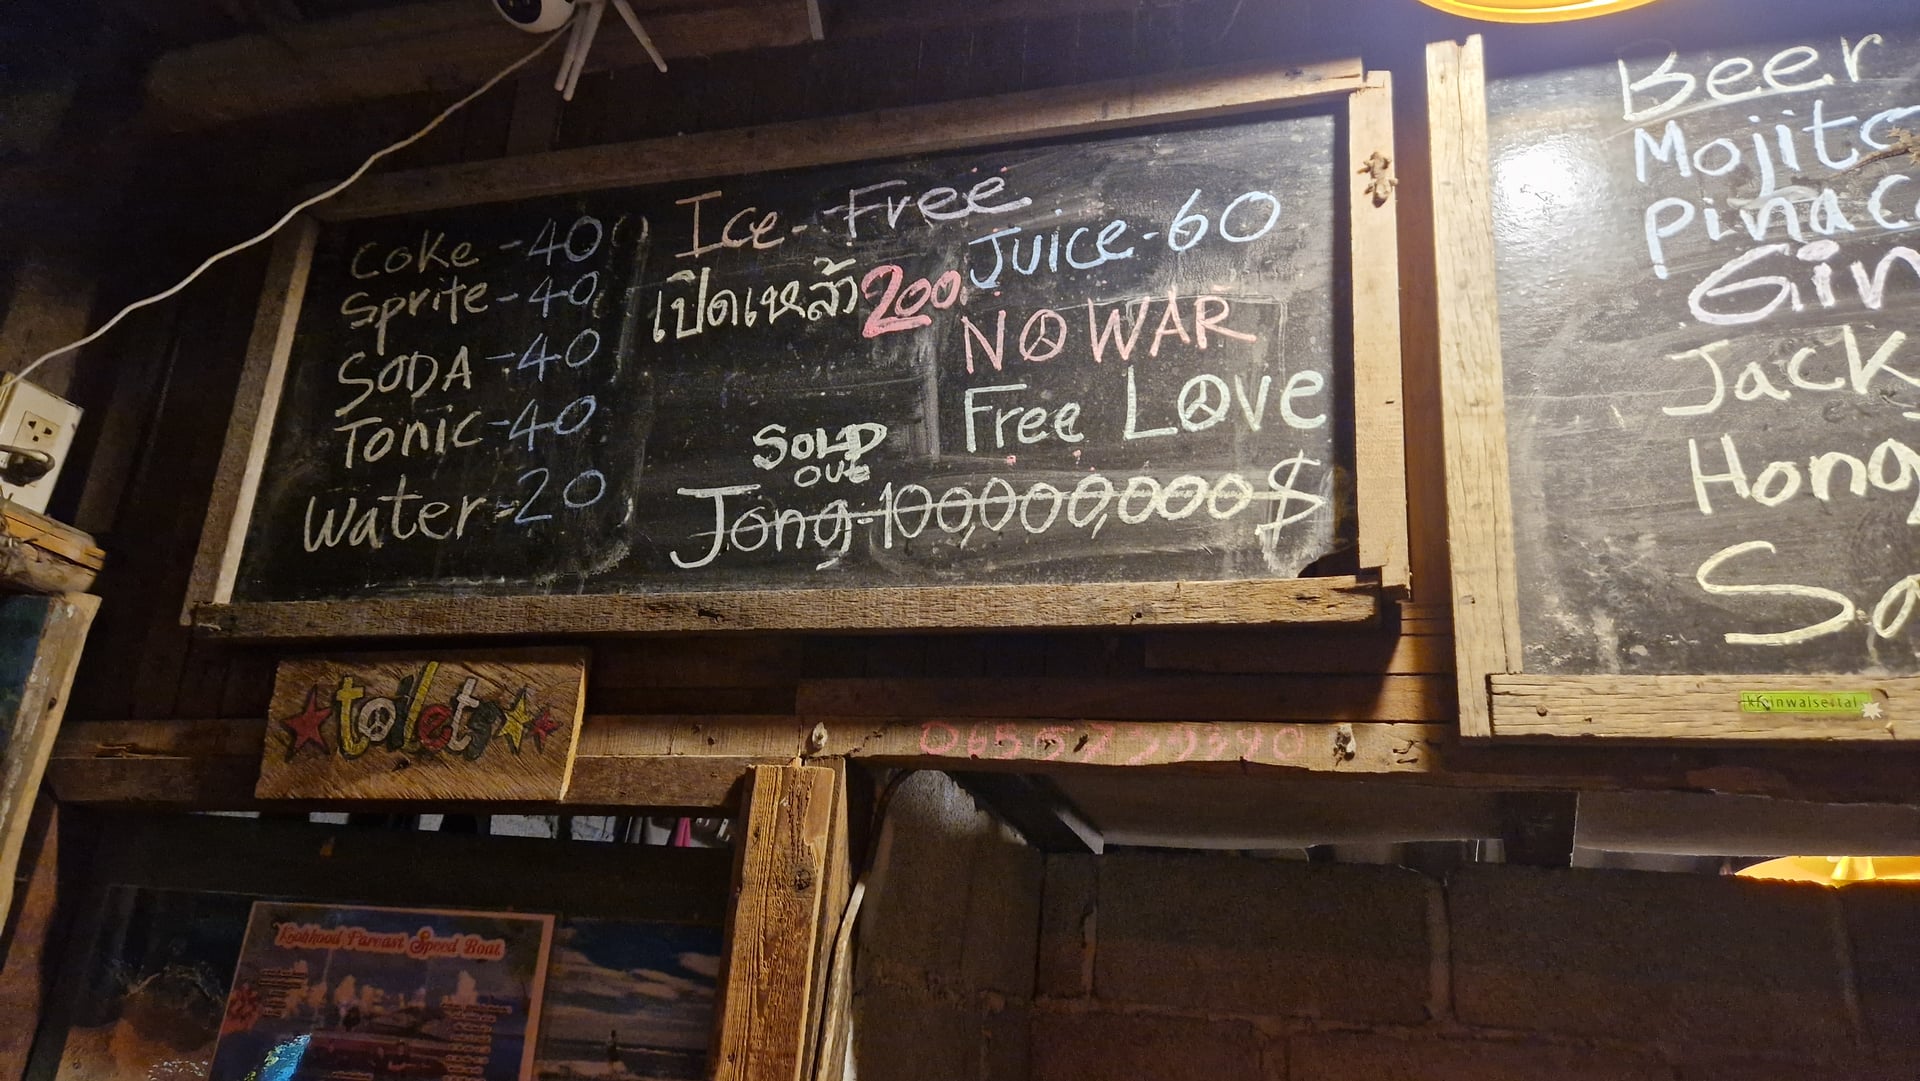 Coke - 40
Sprite - 40
SODA - 40
Tonic - 40
Water - 20
Ice - Free
เปิดเหล้า 200
Juice - 60
NO WAR
Free Love
SOLD
OUT
Jong - 100,000,000 $
Beer
Mojito
Pinac
Gin
Jack
Hong
So
toilets
kleinwalsertal
Speed Boat